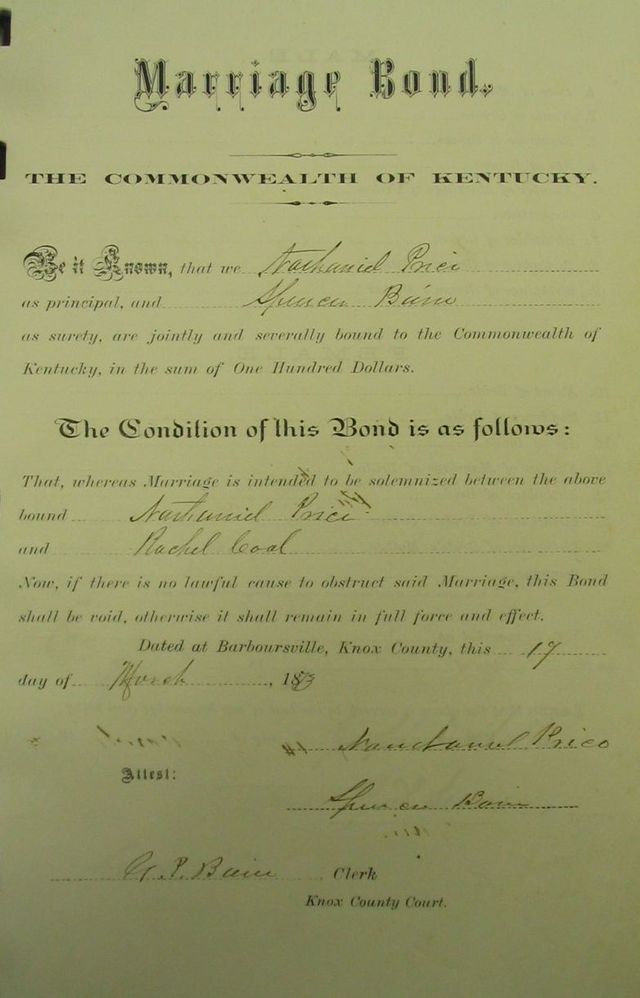 Marriage Bond.
THE COMMONWEALTH OF KENTUCKY.
Be it Known, that we Nathaniel Price
as principal, and Spencer Bain
as surety, are jointly and severally bound to the Commonwealth of
Kentucky, in the sum of One Hundred Dollars.
The Condition of this Bond is as follows:
That, whereas Marriage is intended to be solemnized between the above
bound Nathaniel Price
and Rachel Coal
Now, if there is no lawful cause to obstruct said Marriage, this Bond
shall be void, otherwise it shall remain in full force and effect.
Dated at Barboursville, Knox County, this 17
day of March, 18
Price
Attest:
Spencer Bain
P. Bain Clerk
Knox County Court.